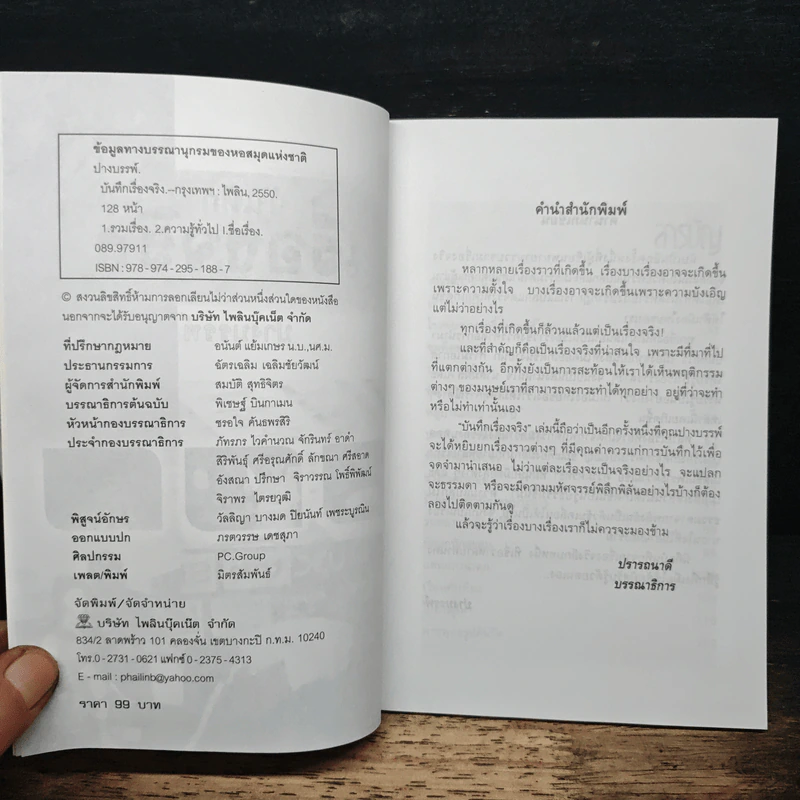 ข้อมูลทางบรรณานุกรมของหอสมุดแห่งชาติ
ปางบรรพ์.
บันทึกเรื่องจริง.--กรุงเทพฯ : ไพลิน, 2550.
128 หน้า
1.รวมเรื่อง. 2.ความรู้ทั่วไป I.ชื่อเรื่อง.
089.97911
ISBN : 978-974-295-188-7
© สงวนลิขสิทธิ์ห้ามการลอกเลียนไม่ว่าส่วนหนึ่งส่วนใดของหนังสือ
นอกจากจะได้รับอนุญาตจาก บริษัท ไพลินบุ๊คเน็ต จำกัด
ที่ปรึกษากฎหมาย อนันต์ แย้มเกษร น.บ.,นศ.ม.
ประธานกรรมการ ฉัตรเฉลิม เฉลิมชัยวัฒน์
ผู้จัดการสำนักพิมพ์ สมบัติ สุทธิจิตร
บรรณาธิการต้นฉบับ พิเชษฐ์ บินกาเมน
หัวหน้ากองบรรณาธิการ ชรอใจ คันธพรสิริ
ประจำกองบรรณาธิการ ภัทรภร ไวคำนวณ จักรินทร์ อาดำ
สิริพันธุ์ ศรีอรุณศักดิ์ ลักขณา ศรีสอาด
อังสณา ปรึกษา จิราวรรณ โพธิ์พิพัฒน์
จิราพร ไตรยวุฒิ
พิสูจน์อักษร วัลลิญา บางมด ปิยนันท์ เพชระบูรณิน
ออกแบบปก ภรตวรรษ เดชสุภา
ศิลปกรรม PC.Group
เพลต/พิมพ์ มิตรสัมพันธ์
จัดพิมพ์/จัดจำหน่าย
บริษัท ไพลินบุ๊คเน็ต จำกัด
834/2 ลาดพร้าว 101 คลองจั่น เขตบางกะปิ ก.ท.ม. 10240
โทร.0-2731-0621 แฟกซ์ 0-2375-4313
E - mail : phailinb@yahoo.com
ราคา 99 บาท
คำนำสำนักพิมพ์
หลากหลายเรื่องราวที่เกิดขึ้น เรื่องบางเรื่องอาจจะเกิดขึ้น
เพราะความตั้งใจ บางเรื่องอาจจะเกิดขึ้นเพราะความบังเอิญ
แต่ไม่ว่าอย่างไร
ทุกเรื่องที่เกิดขึ้นก็ล้วนแล้วแต่เป็นเรื่องจริง!
และที่สำคัญก็คือเป็นเรื่องจริงที่น่าสนใจ เพราะมีที่มาที่ไป
ที่แตกต่างกัน อีกทั้งยังเป็นการสะท้อนให้เราได้เห็นพฤติกรรม
ต่างๆ ของมนุษย์เราที่สามารถจะกระทำได้ทุกอย่าง อยู่ที่ว่าจะทำ
หรือไม่ทำเท่านั้นเอง
"บันทึกเรื่องจริง" เล่มนี้ถือว่าเป็นอีกครั้งหนึ่งที่คุณปางบรรพ์
จะได้หยิบยกเรื่องราวต่างๆ ที่มีคุณค่าควรแก่การบันทึกไว้เพื่อ
จดจำมานำเสนอ ไม่ว่าแต่ละเรื่องจะเป็นจริงอย่างไร จะแปลก
จะธรรมดา หรือจะมีความมหัศจรรย์พิลึกพิลั่นอย่างไรบ้างก็ต้อง
ลองไปติดตามกันดู
แล้วจะรู้ว่าเรื่องบางเรื่องเราก็ไม่ควรจะมองข้าม
ปรารถนาดี
บรรณาธิการ